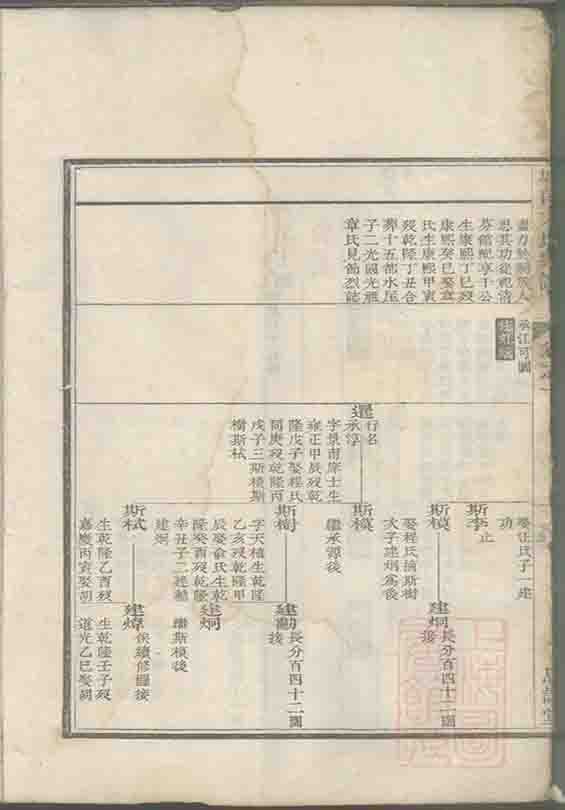 盡力於祠族人
思其功從祀清
芬館配享于公
生康熙丁巳歿
康熙癸巳娶章
氏生康熙甲寅
歿乾隆丁丑合
葬十五都水屋
子二光國光
章氏見節烈誌
承江可圖
遥
行名
承淳
字景南庠士生
雍正甲辰歿乾
隆戊子娶程氏
同庚歿乾隆丙
戌子三斯模斯
樹斯栻
娶汪氏子一建
功
斯李止
斯模
娶程氏繼斯樹
次子建炯爲後
建炯
長分百四十二圖
接
斯模
繼承淳後
斯樹
字天植生乾隆
乙亥歿乾隆甲
辰娶俞氏生乾
隆癸酉歿乾隆
辛丑子二建
建炯
長分百四十二圖
後
建炯
繼斯模後
斯栻
生乾隆乙酉歿
嘉慶丙寅娶胡
建煒
俟續修譜接
生乾隆壬子歿
道光乙巳娶胡